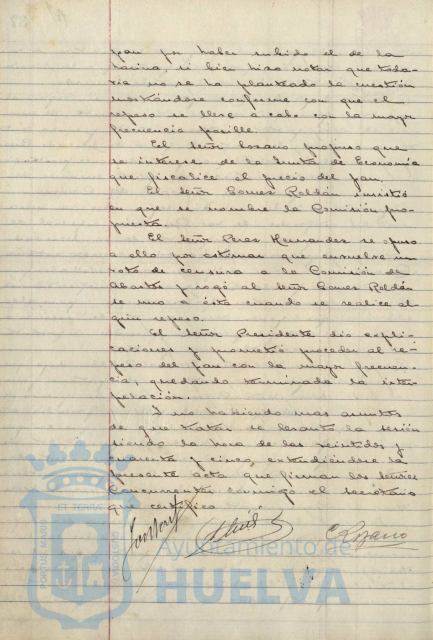 pan por haber subido el de la
harina, si bien hizo notar que toda-
via no se ha planteado la cuestión
mostrándose conforme con que el
repeso se lleve a cabo con la mayor
frecuencia posible.
El Señor Lozano propuso que
se interese de la Junta de Economía
que fiscalice el precio del pan.
El Señor Gomez Roldán insistió
en que se nombre la Comisión pro-
puesta.
El Señor Perez Hernandez se opuso
a ello por estimar que envuelve un
voto de censura a la Comisión de
Abastos y rogó al Señor Gomez Roldán
se una a ésta cuando se realice al-
gún repeso.
El Señor Presidente dió expli-
caciones y prometió proceder al re-
peso del pan con la mayor frecuen-
cia, quedando terminada la inter-
pelación.
Y no habiendo mas asuntos
de que tratar se levantó la sesión
siendo la hora de las veintidos y
cuarenta y cinco, extendiéndose la
presente acta que firman los Señores
Concurrentes conmigo el Secretario
que certifico
C Lozano
Ayuntamiento de
HUELVA